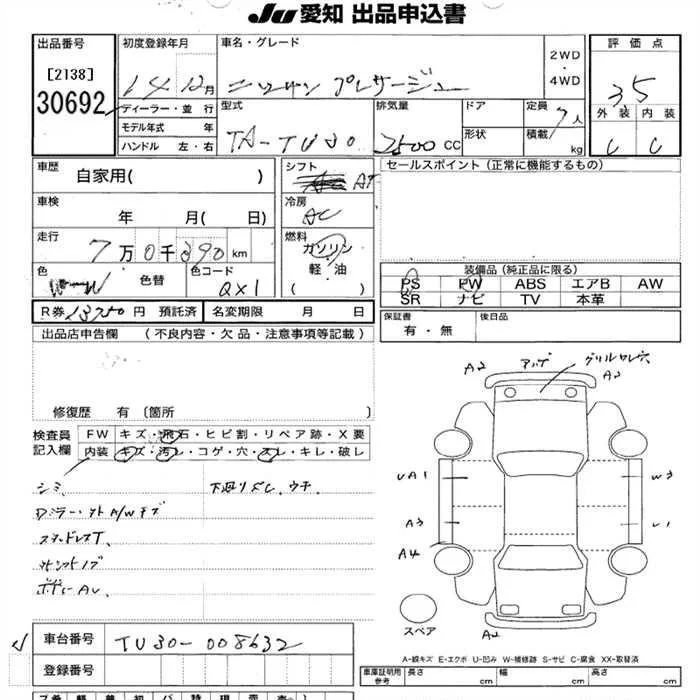 JU 愛知 出品申込書
出品番号
[2138]
30692
初度登録年月
14 12月
ディーラー・並行
モデル年式 年
ハンドル 左・右
車名・グレード
ニッサン プレサージュ
2WD
・
4WD
型式
TA-TU30
排気量
2500 CC
ドア
形状
定員
7人
積載 kg
評価点
3.5
外装 内装
C C
車歴
自家用( )
車検
年 月( 日)
走行
7万0千390km
色
色替
色コード
QX1
シフト
AT
冷房
AC
燃料
ガソリン
・
軽・油
( )
セールスポイント (正常に機能するもの)
装備品 (純正品に限る)
PS PW ABS エアB AW
SR ナビ TV 本革
R券 13750円 預託済
名変期限 月 日
保証書
有・無
後日品
出品店申告欄 (不良内容・欠品・注意事項等記載)
修復歴 有 〔箇所 〕
検査員
記入欄
FW キズ・飛石・ヒビ割・リペア跡・X要
内装 キズ・汚レ・コゲ・穴・スレ・キレ・破レ
シミ
下廻りズレ、ウチ
A2 アルゲ
A2
UA1
A3
A4
W3
U1
A2
スペア
A-線キズ E-エクボ U-凹み W-補修跡 S-サビ C-腐食 XX-取替済
車台番号
TU30-008632
登録番号
車庫証明用
参考
長さ cm
幅 cm
高さ cm